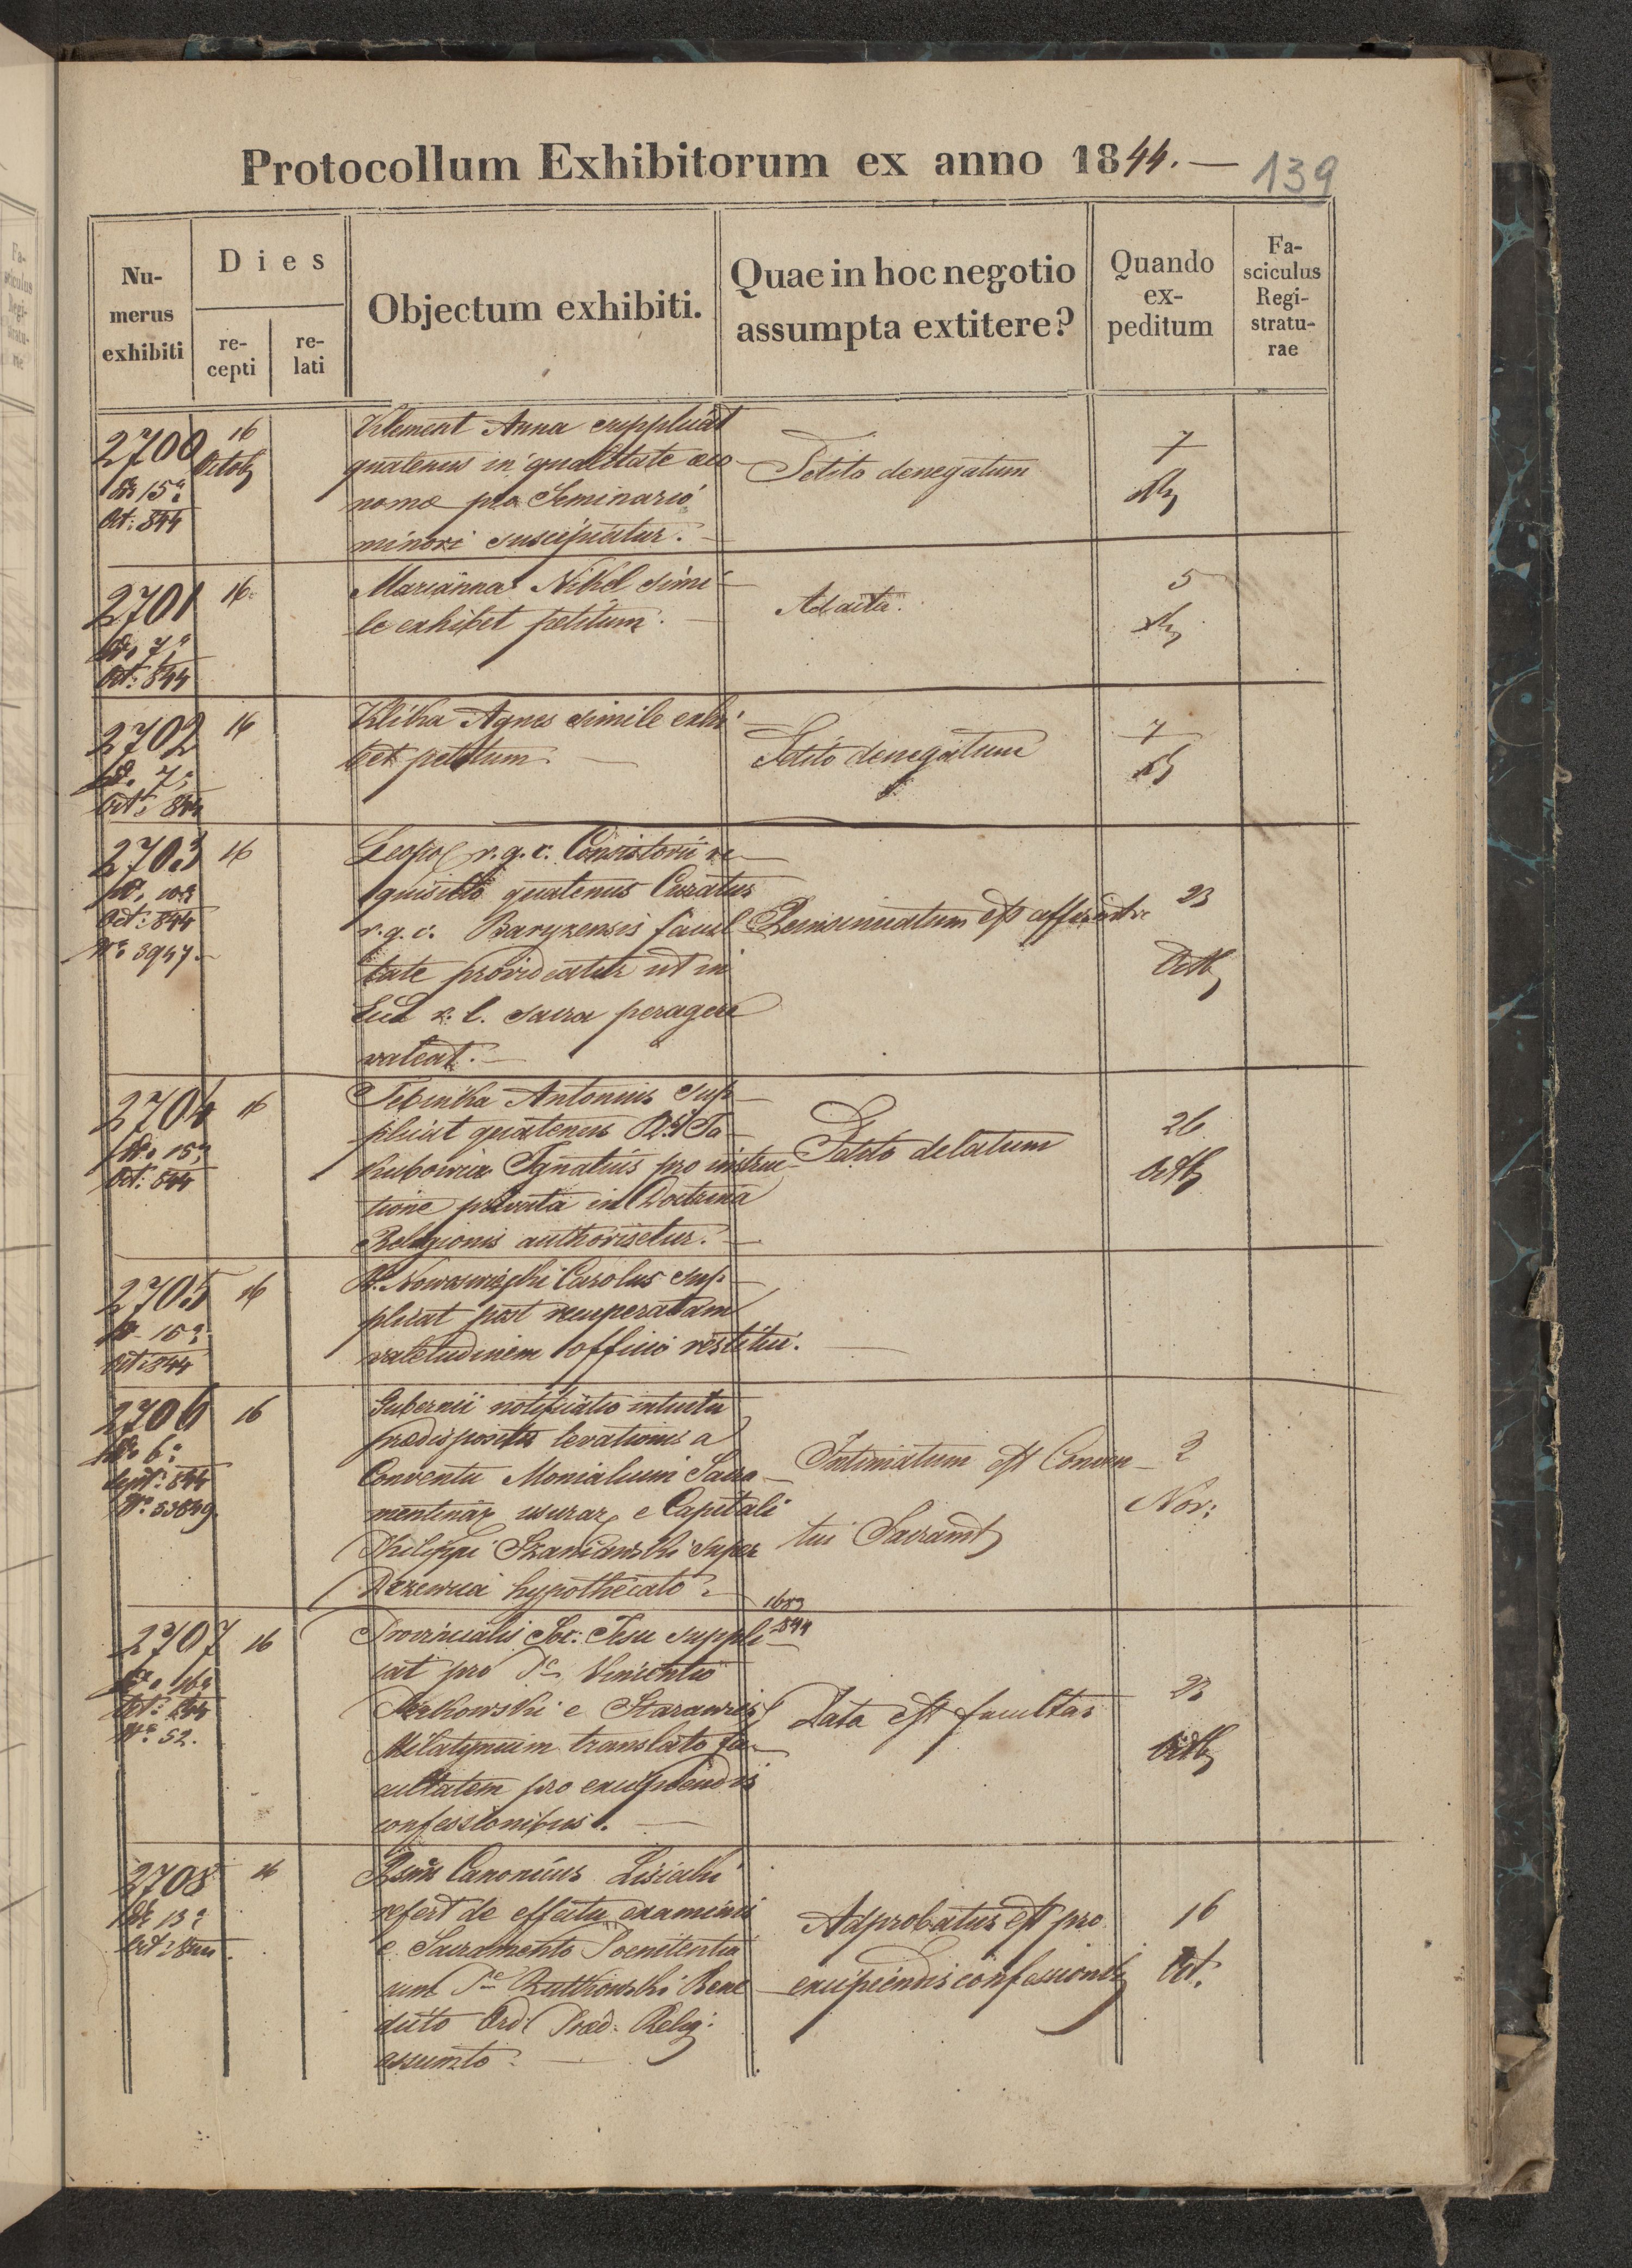 Protocollum Exhibitorum ex anno 1844. —
139
Nu-
merus
exhibiti
Dies
re-
cepti
re-
lati
Objectum exhibiti.
Quae in hoc negotio
assumpta extitere?
Quando
ex-
peditum
Fa-
sciculus
Regi-
stratu-
rae
2700
15a
Oct: 844
16
Klement Anna supplicat
quatenus in qualitate oeco
nomae pro Seminario
minori suscipiatur. —
Petito denegatum
7
2701
7a
Oct: 844
16
Marianna Nikel simi-
le exhibet petitum. —
Ad acta.
5
2702
7a
Oct: 844
16
Klika Agnes simile exhi-
bet petitum. —
Petito denegatum
7
2703
Oct: 844
No 3947.
16
Leopol r. g. c. Consistorii re-
quisitio quatenus Curatus
r. g. c. Baryzensis facul
tate provideatur ut in
Eccl r. l. sacra peragere
valeat. —
est
23
2704
15a
Oct: 844
16
Antonius sup-
plicat quatenus
Ignatius pro instruc-
tione privata in Doctrina
Religionis authorisetur. —
Petito delatum
26
2705
15a
Oct: 844
16
Carolus sup-
plicat post recuperatam
valetudinem officio restitui. —
2706
6a
Sept: 844
No 53849
16
Gubernii notificatio intuitu
praedispositae levationis a
Conventu Monialium Sacra-
mentinar usurar e Capitali
Philippi super
hypothecato. —
Intimatum est Conven-
tui Sacrament
2
Nov:
2707
Oct: 844
No 52.
16
Provincialis Soc: Jesu suppli-
844
cat pro Vincentio
e Starawies
Milatynum translato fa-
cultatem pro excipiendis
confessionibus. —
Data est facultas
23
2708
13a
16
Canonicus
refert de effectu examinis
e Sacramento Poenitentiae
cum Ruttkowski Bene
dicto Ord Praed. Relig:
assumto. —
Adprobatus est pro
excipiendis confessionib
16
Oct.